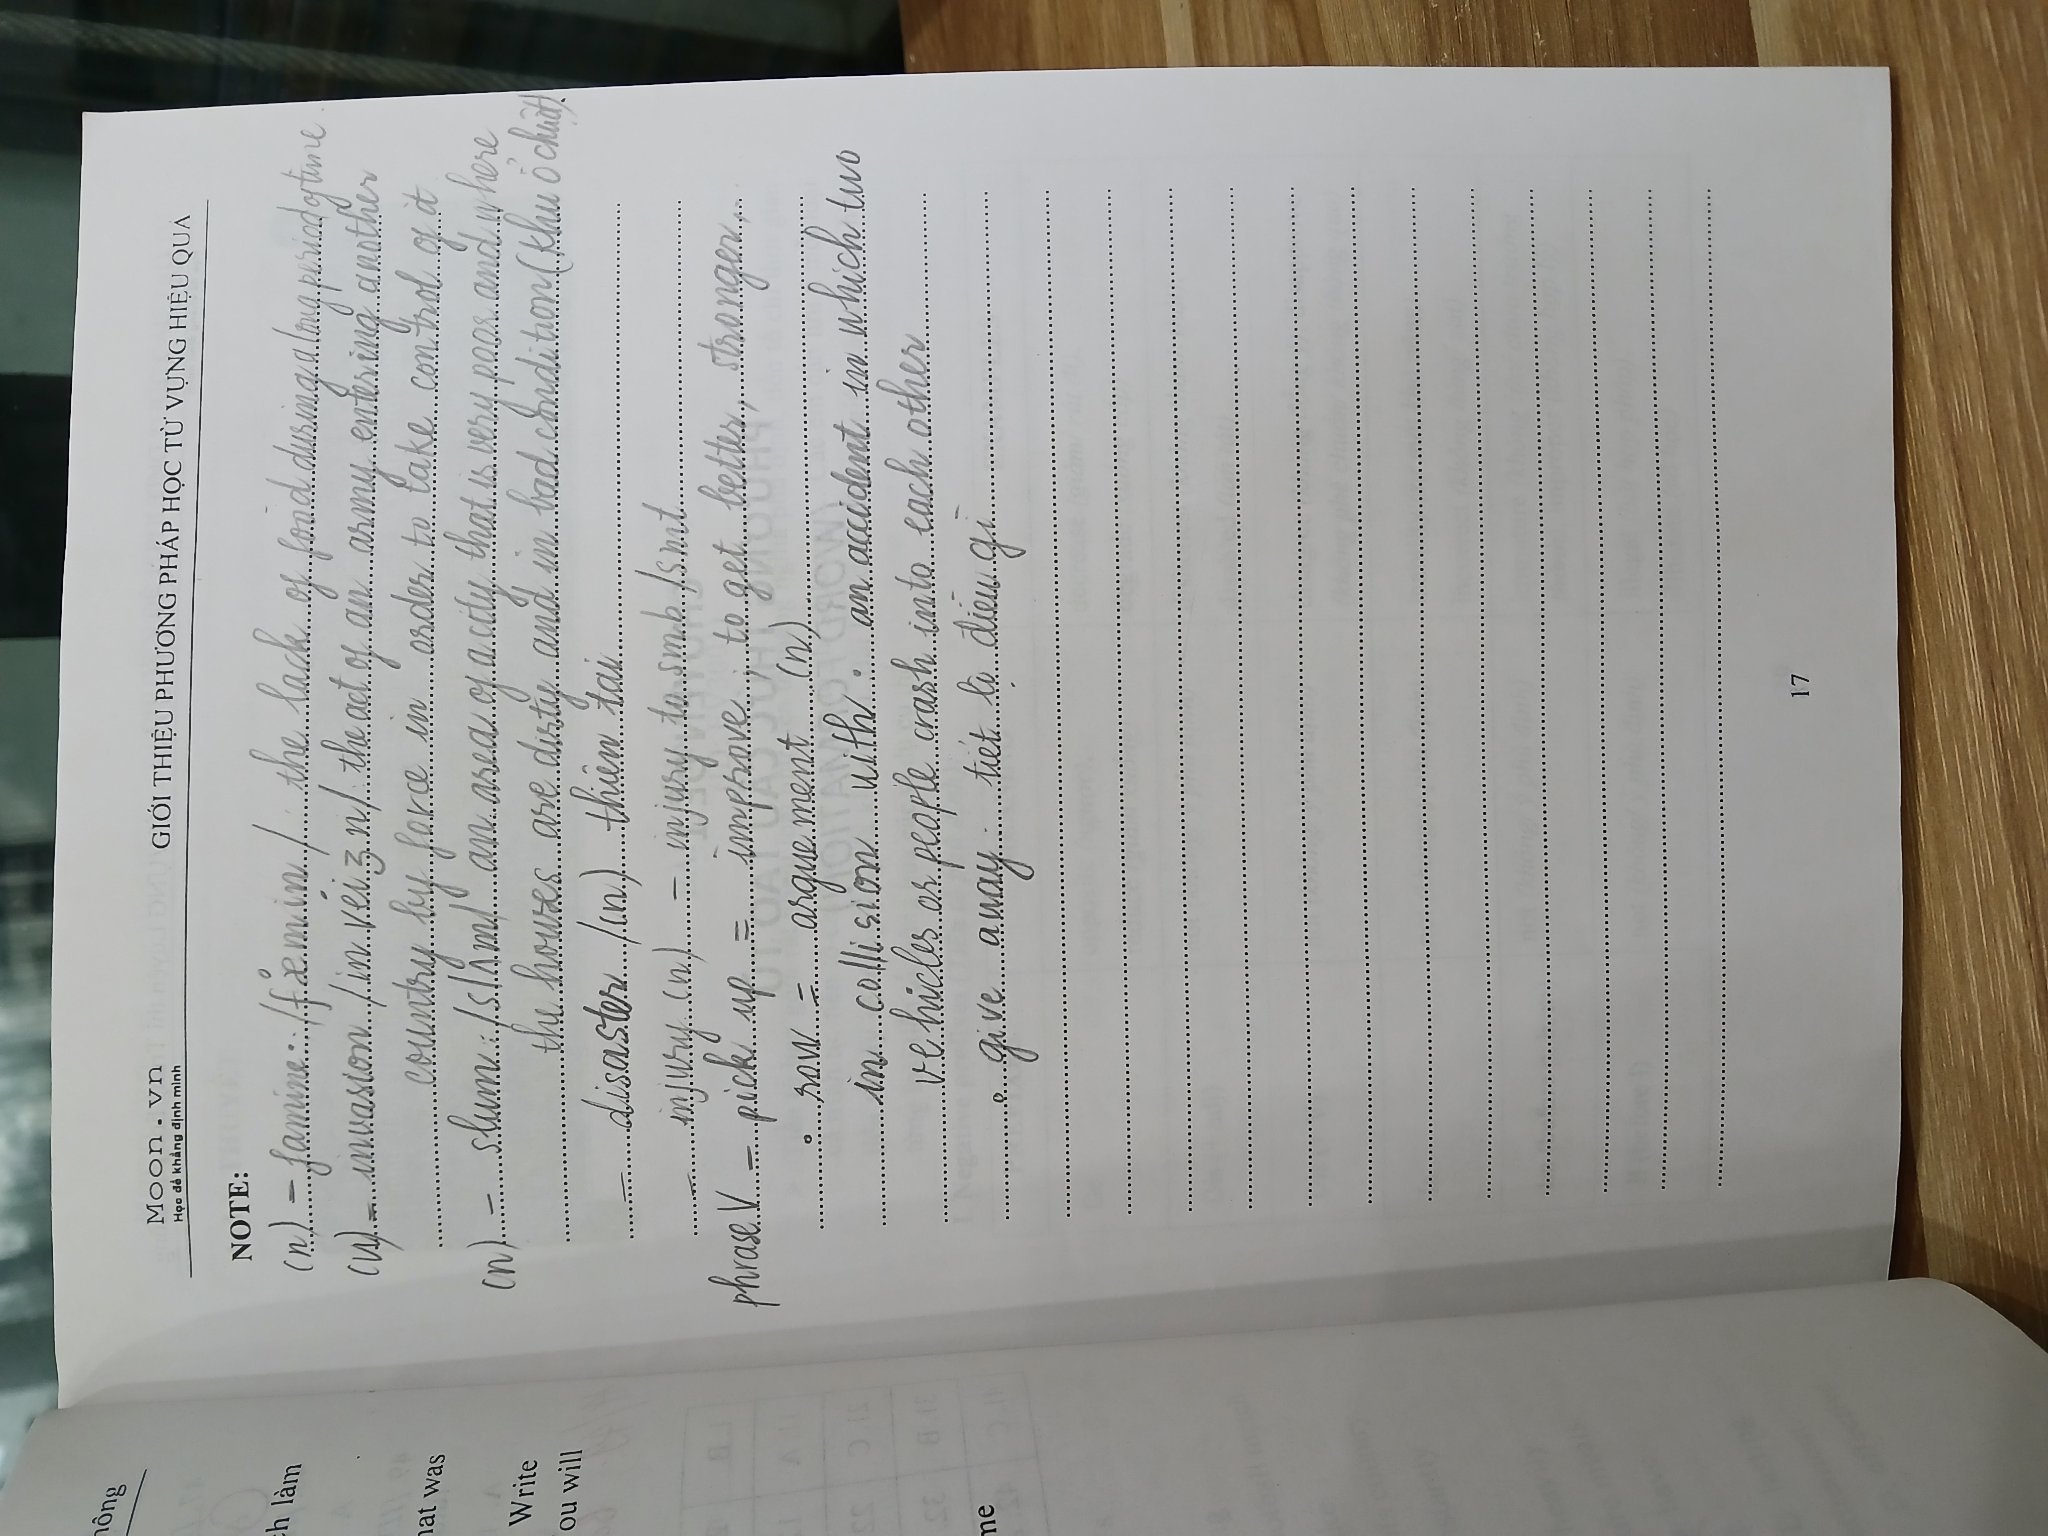 Moon.vn
Học để khẳng định mình
GIỚI THIỆU PHƯƠNG PHÁP HỌC TỪ VỰNG HIỆU QUẢ
NOTE:
(n) – famine: /fæmin/ : the lack of food during a long peridoftime
(n) – invasion /in'veiʒn/ : the act of an army entering another
country by force in order to take control of it
(n) – slum: /slʌm/ an area of a city that is very poor and where
the houses are dirty and in bad condition (khu ổ chuột).
– disaster /(n) thiên tai
– injury (n) – injury to smb/smt
phraseV – pick up = improve : to get better, stronger,...
° row = arguement (n)
in collision with : an accident in which two
vehicles or people crash into each other
° give away : tiết lộ điều gì
17
hông
ch làm
hat was
Write
ou will
me